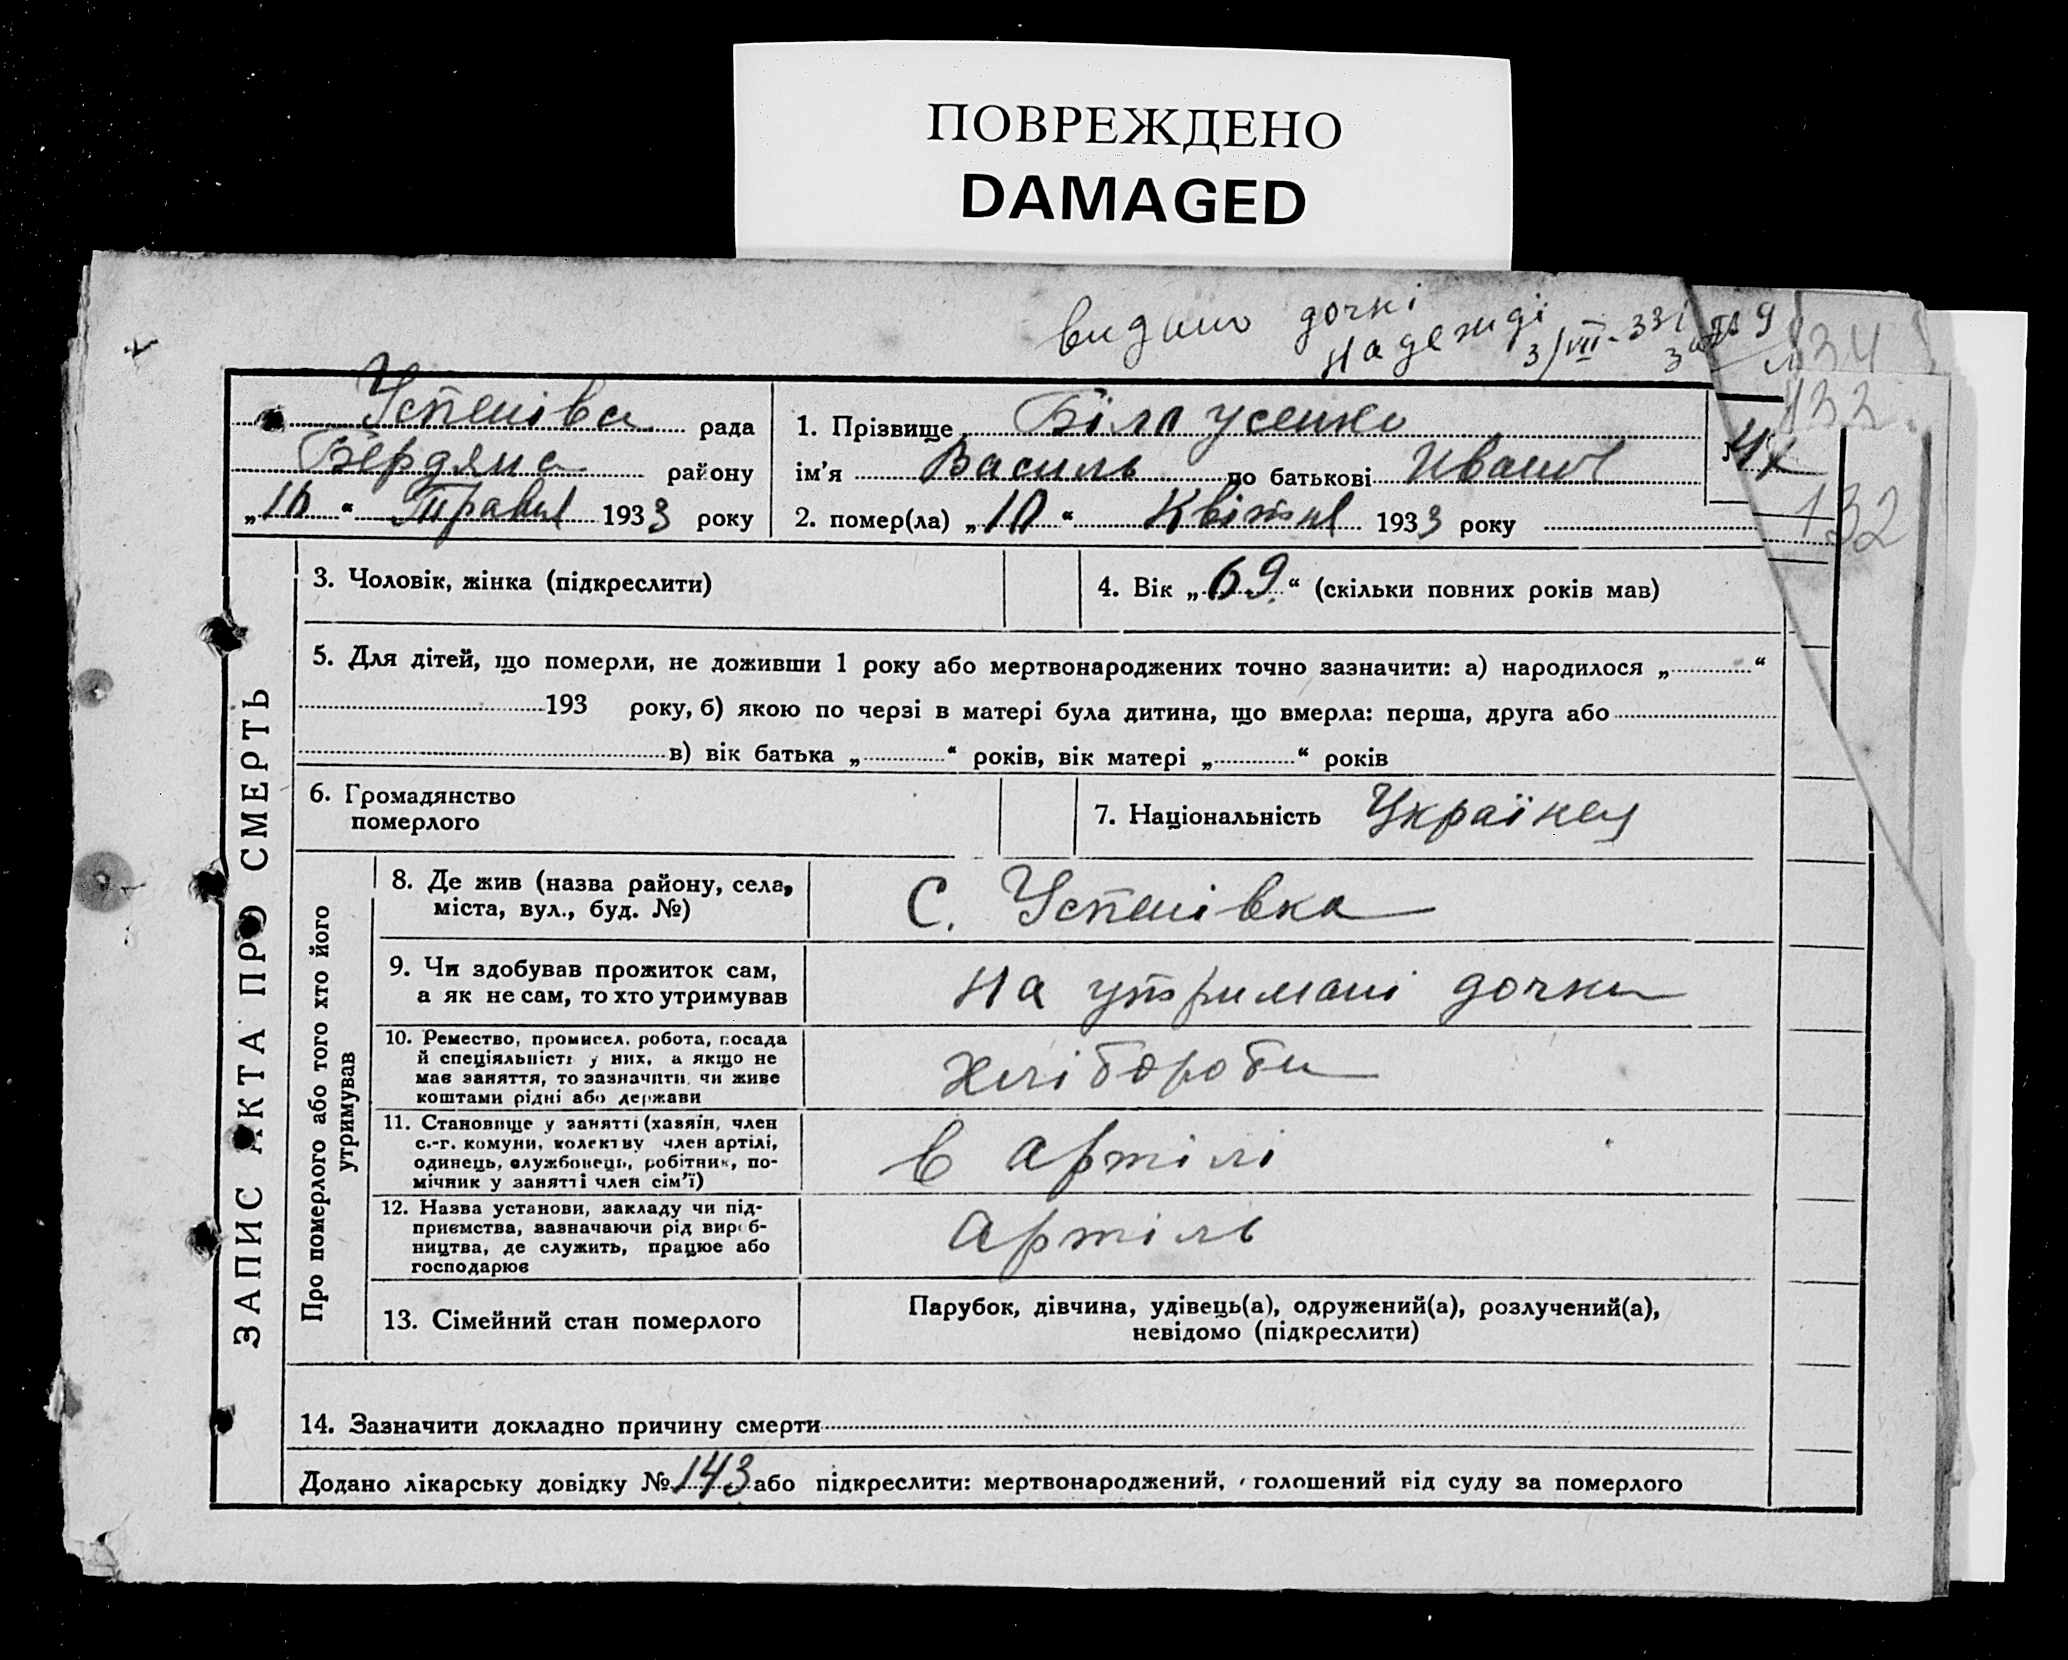 ПОВРЕЖДЕНО
DAMAGED
видано дочкі
Надежді
3/VII-33
Успенівс рада
Бердянс району
„10“ Травня 1933 року
1. Прізвище Білоусенко
ім'я Василь по батькові Иванов
2. помер(ла) „10“ Квітня 1933 року
132
ЗАПИС АКТА ПРО СМЕРТЬ
3. Чоловік, жінка (підкреслити)
4. Вік „69“ (скільки повних років мав)
5. Для дітей, що померли, не доживши 1 року або мертвонароджених точно зазначити: а) народилося „ “
193 року, б) якою по черзі в матері була дитина, що вмерла: перша, друга або
в) вік батька „ “ років, вік матері „ “ років
6. Громадянство
померлого
7. Національність Українец
Про померлого або того хто його
утримував
8. Де жив (назва району, села,
міста, вул., буд. №)
С. Успенівка
9. Чи здобував прожиток сам,
а як не сам, то хто утримував
На утримані дочки
10. Ремество, промисел, робота, посада
й спеціяльність у них, а якщо не
має заняття, то зазначити, чи живе
коштами рідні або держави
Хлібороби
11. Становище у занятті (хазяїн, член
с.-г. комуни, колективу член артілі,
одинець, службовець, робітник, по-
мічник у занятті член сім'ї)
в артілі
12. Назва установи, закладу чи під-
приємства, зазначаючи рід вироб-
ництва, де служить, працює або
господарює
Артіль
13. Сімейний стан померлого
Парубок, дівчина, удівець(а), одружений(а), розлучений(а),
невідомо (підкреслити)
14. Зазначити докладно причину смерти
Додано лікарську довідку № 143 або підкреслити: мертвонароджений, голошений від суду за померлого